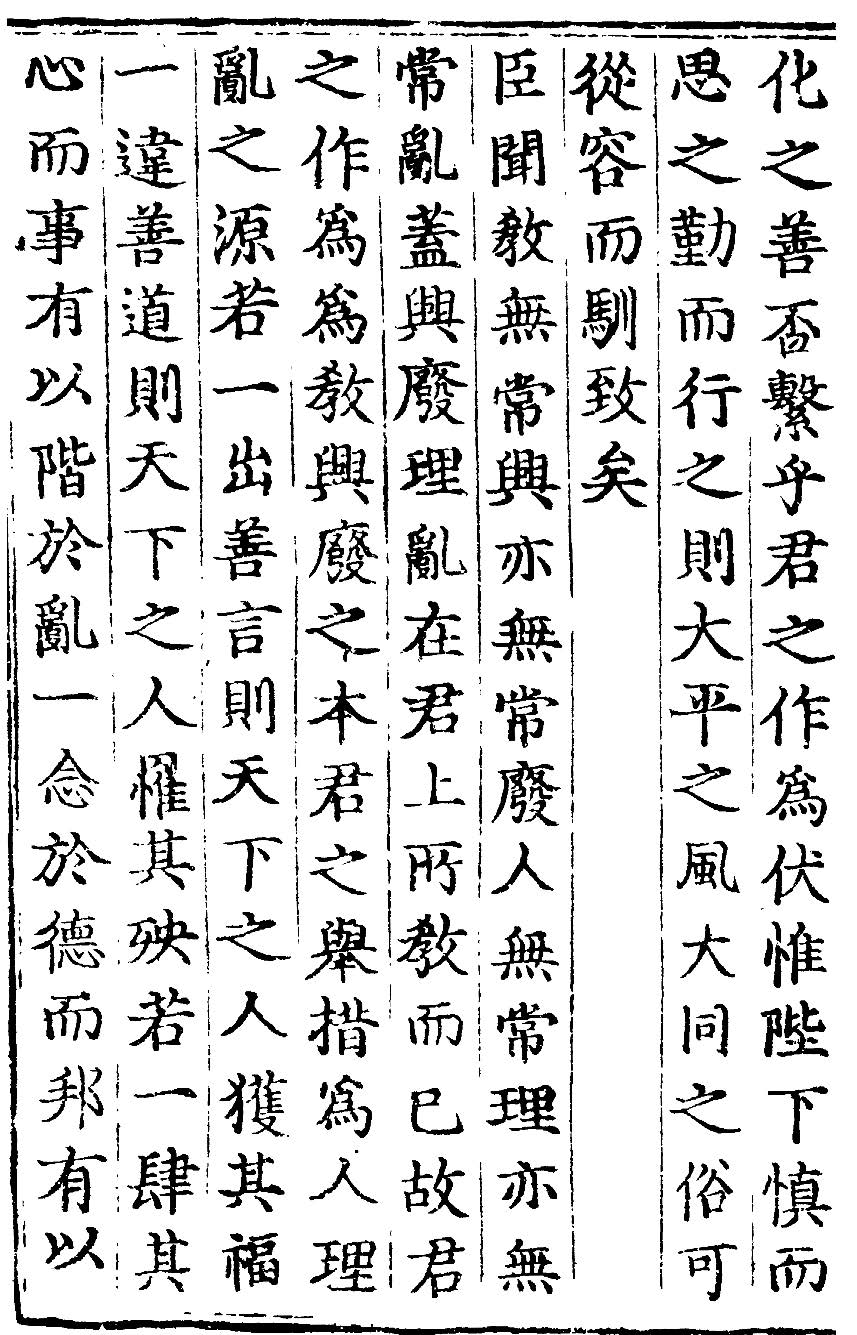 化之善否繫乎君之作爲伏惟陛下慎而
思之勤而行之則大平之風大同之俗可
從容而馴致矣
臣聞敎無常興亦無常廢人無常理亦無
常亂蓋興廢理亂在君上所敎而已故君
之作爲爲敎興廢之本君之舉措爲人理
亂之源若一出善言則天下之人獲其福
一違善道則天下之人罹其殃若一肆其
心而事有以階於亂一念於德而邦有以